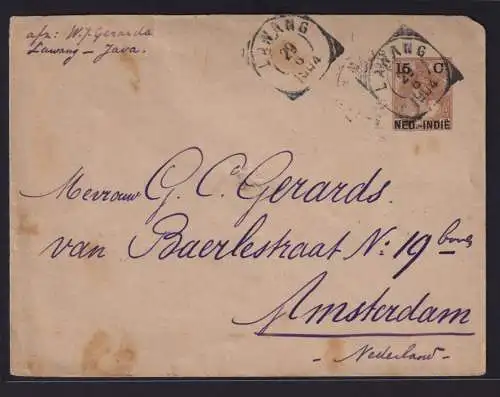 afz: W. J. Gerards
Lawang – Java.
LAWANG
29
6
1904
LAWANG
29
6
1904
15 C
NED.-INDIË
Mevrouw G. C. Gerards.
van Baerlestraat No: 19 boven
Amsterdam
– Nederland –